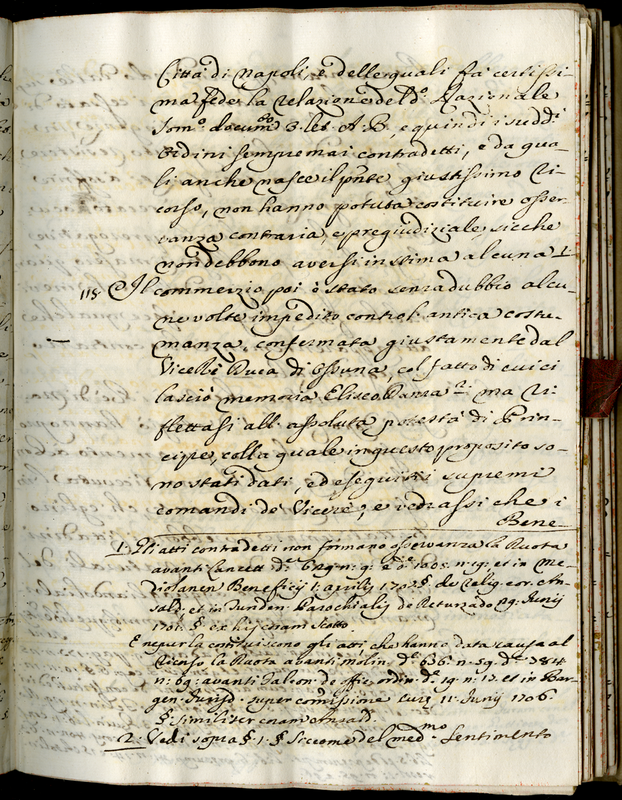 Città di Napoli, e delle quali fa certissi-
ma fede la relazione del d.º Razionale
Som.º docum.to 3. let. A. B., e quindi i sudd.i
Ordini sempre mai contradetti, e da qua-
li anche nasce il pnte giustissimo Ri-
corso, non hanno potuto costituire osser-
vanza contraria, e pregiudiziale, sicche
non debbono aversi in stima alcuna 1.
115. Il commerzio poi è stato senza dubbio alcu-
ne volte impedito contro l'antica costu-
manza, confermata giustamente dal
Vicerè Duca di Ossuna, col fatto di cui ci
lasciò memoria Eliseo Danza 2: ma ri-
flettasi all'assoluta potestà di Prin-
cipe, colla quale in questo proposito so-
no stati dati, ed eseguiti i supremi
comandi de' Vicerè, e vedrassi che i
Bene-
1. Gli atti contradetti non formano osservanza la Ruota
avanti
n: 9: et in Me-
diolanen Beneficij 1: aprilis 170 §. de Relig. cor. An-
sald. et in Tunden. Parochialis de Returzado 29. Junij
1701. §. ex his cnam Scotto.
E nepur la costituiscono gli atti che hanno data causa al
Ricorso la Ruota avanti Molin. d.e 636. n. 59. d.e 784
n: 69: avanti Falcon. de offic. ordin. d.e 19. n. 17. et in Bar-
gen. Jurisd. super comissione Curiæ 11. Junij 1706.
§. similiter cnam Ansald.
2. Vedi sopra §. 1. § Siccome del med.mo Sentimento